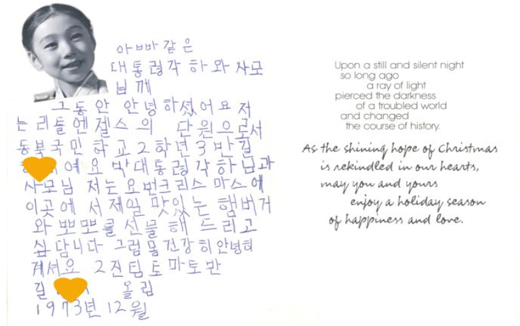 아빠같은
대통령각하와 사모
님께
그동안 안녕하셨어요 저
는 리틀엔젤스의 단원으로서
동북국민학교2학년3반김
여요 박대통령각하님과
사모님 저는 요번크리스마스에
이곳에서제일 맛있는 햄버거
와 뽀뽀를 선물해 드리고
싶답니다 그럼몸건강히안녕히
계셔요 2진팀토마토반
김 올림
1973년 12월
Upon a still and silent night
so long ago
a ray of light
pierced the darkness
of a troubled world
and changed
the course of history.
As the shining hope of Christmas
is rekindled in our hearts,
may you and yours
enjoy a holiday season
of happiness and love.